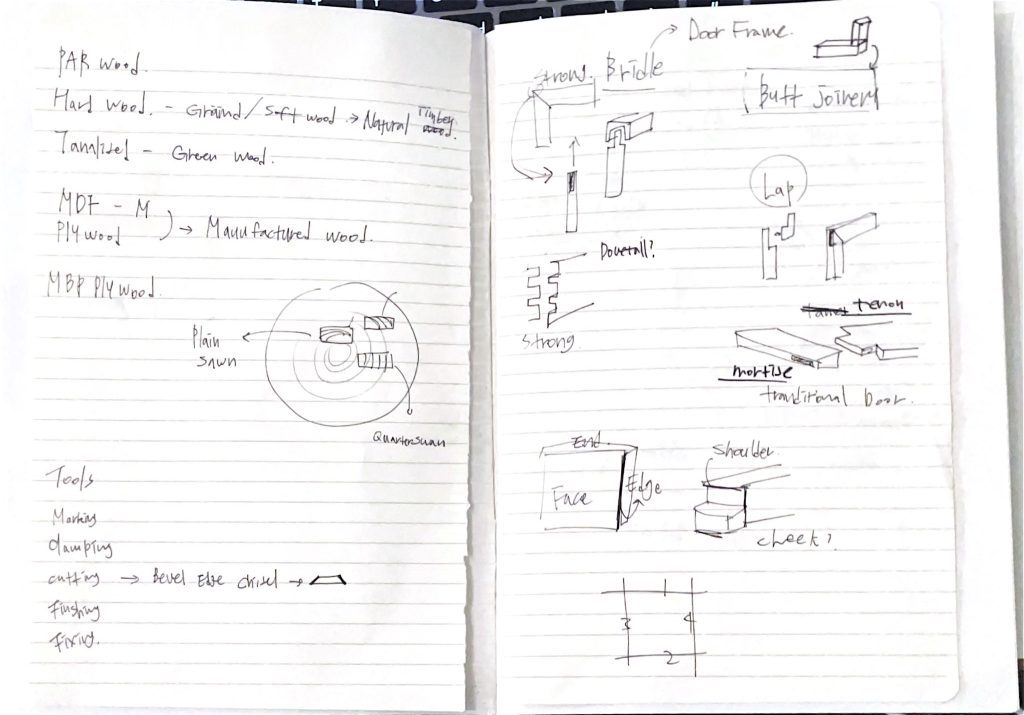 PAR wood.
Hard wood. - Graind/Soft wood → Natural Timber
wood.
Tanalised - Green wood.
MDF - M
Plywood → Manufactured wood.
MBP Plywood.
Plain
sawn
Quartersawn
Tools
Marking
clamping
cutting → Bevel Edge chisel →
Finshing
Fixing.
Door Frame.
Strong. Bridle
Butt joinery
Lap
Dovetail?
Strong
tenon
mortise
tranditional Door.
End
Face
Edge
Shoulder
cheek?
1
3
4
2